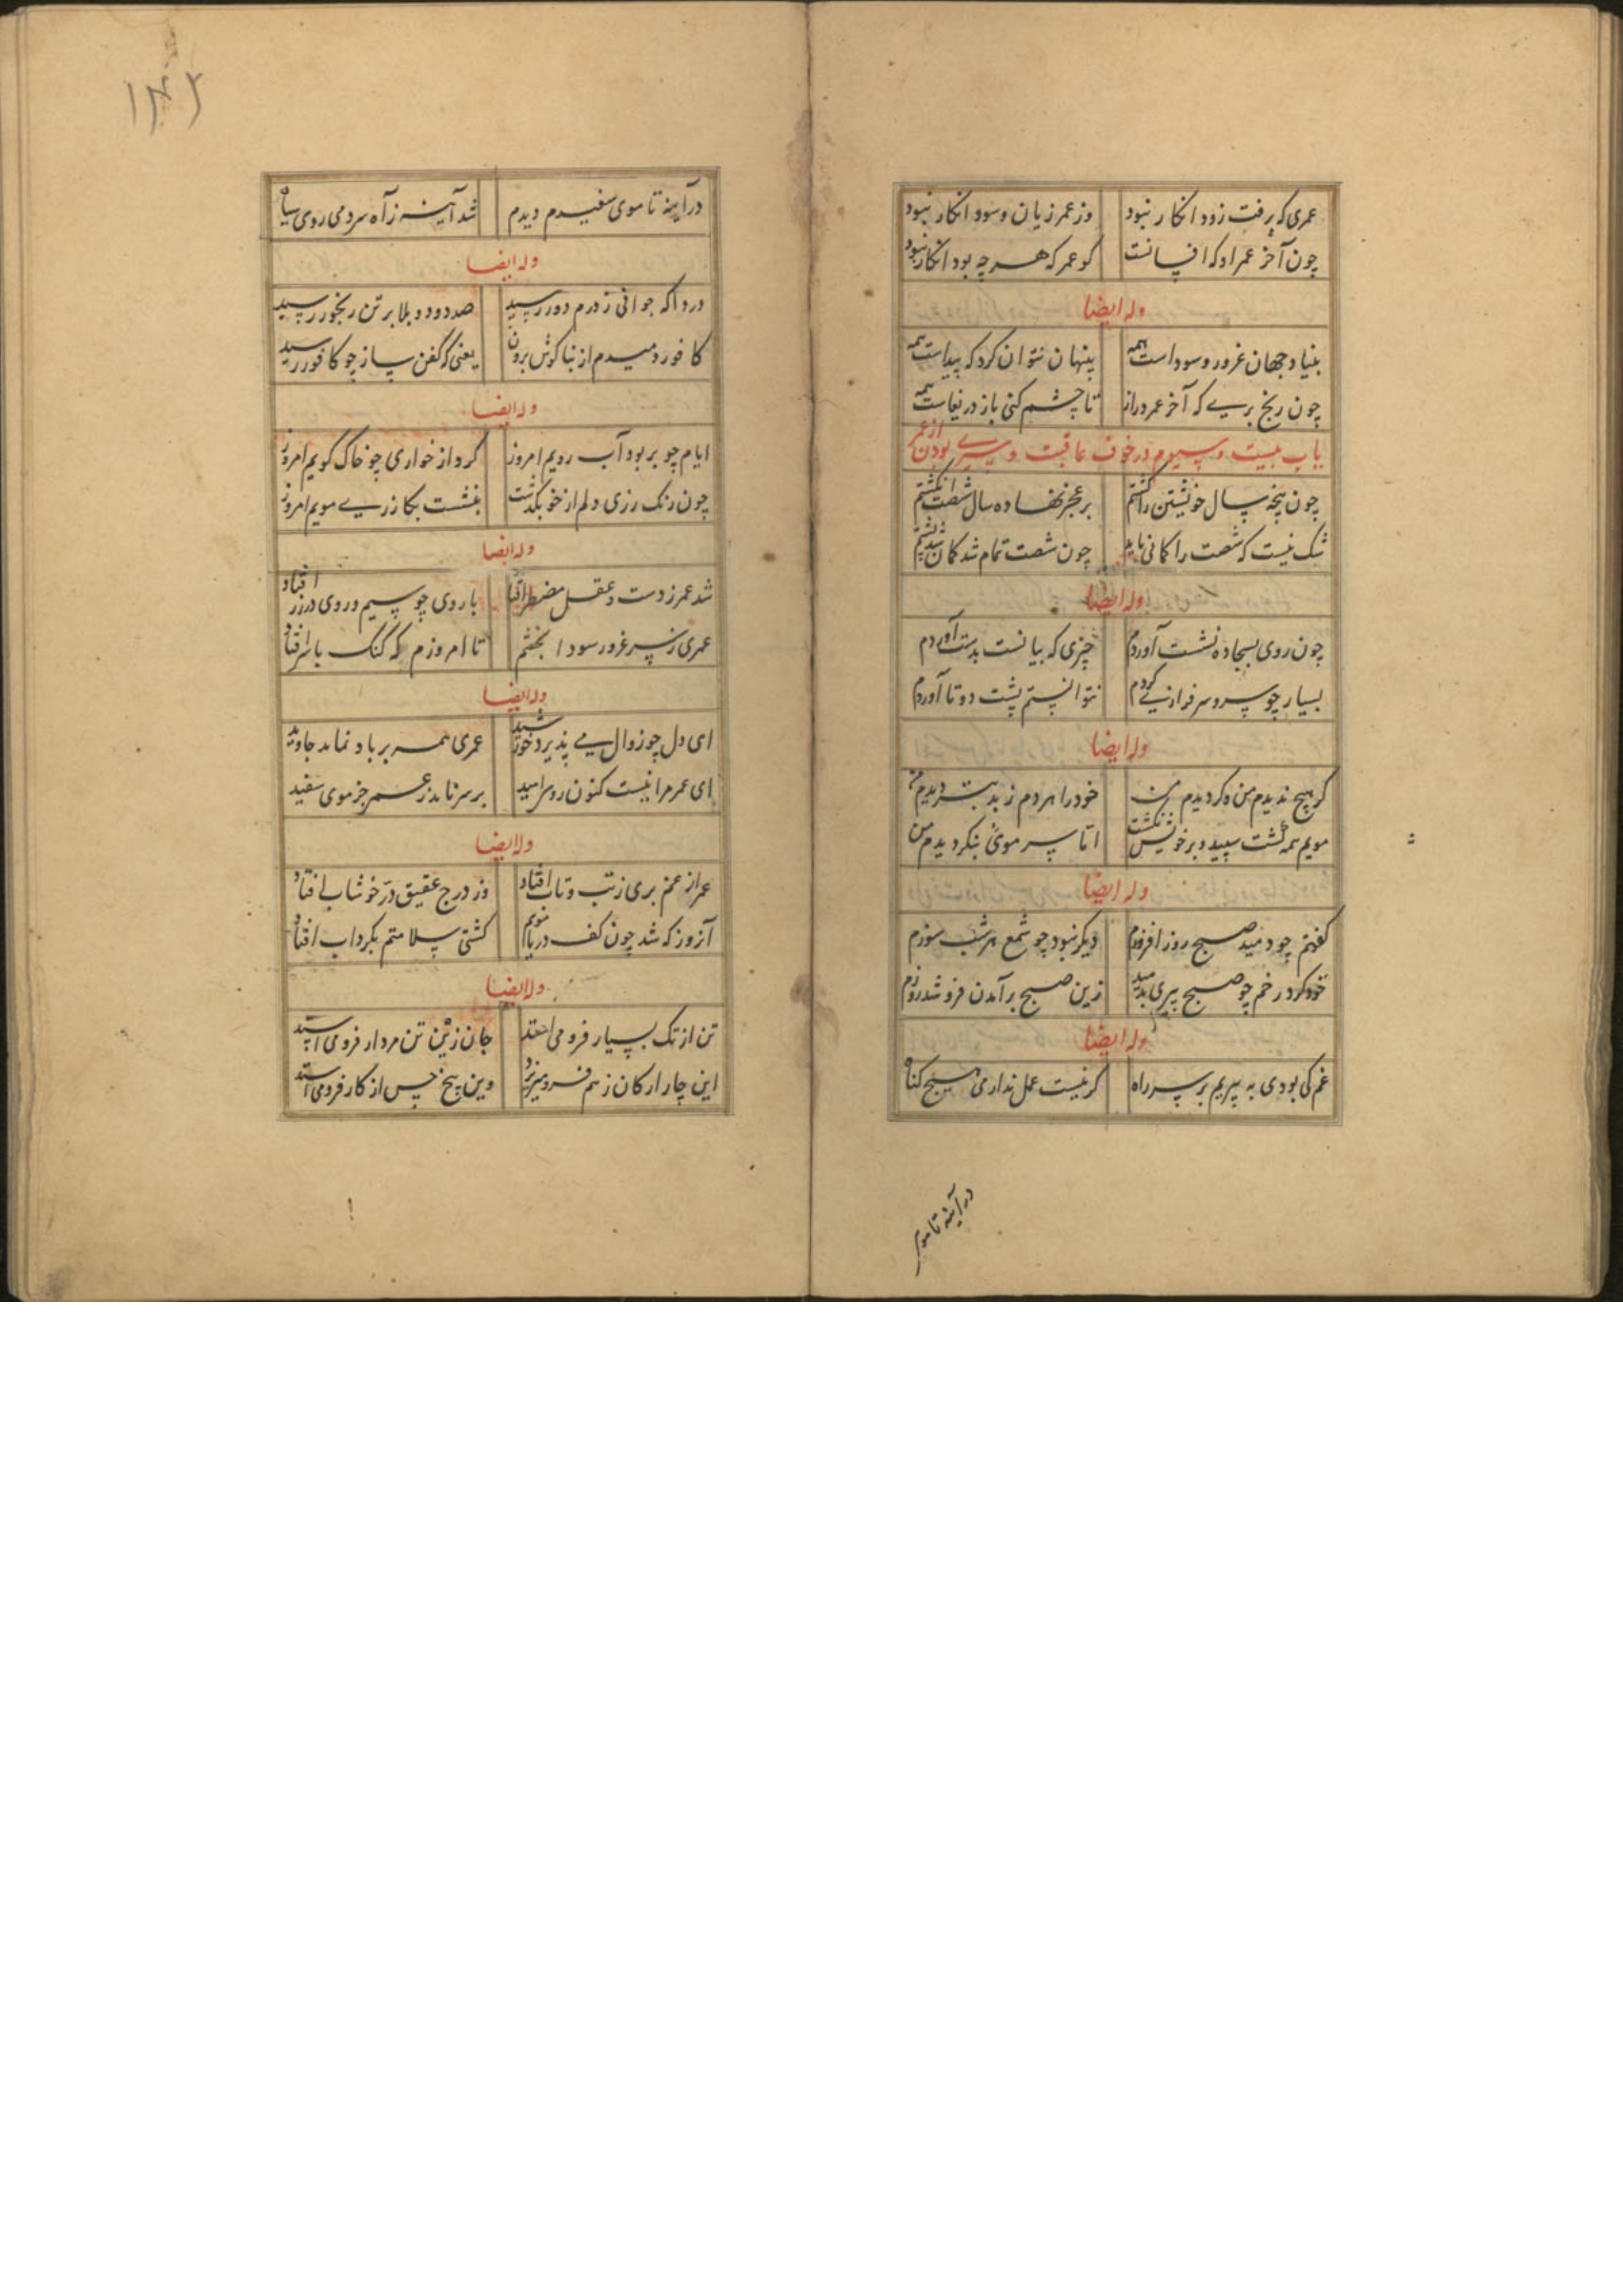 عمری که برفت زود انکار نبود
وز عمر زیان و سود انکار نبود
چون آخر عمر او که افسانست
کو عمر که هر چه بود انکار نبود
وله ایضا
بنیاد جهان غرور و سوداست همه
پنهان نتوان کرد که پیداست همه
چون رنج بری که آخر عمر دراز
تا چشم کنی باز دریغاست همه
باب بیست و سیوم در خوف عاقبت و سیری از عمر بودن
چون پنجه سال خویشتن را کشتم
بر عجز نهاده سال شصت انکشتم
شک نیست که شصت را کمانی باید
چون شصت تمام شد کمان شد پشتم
وله ایضا
چون روی بسجاده نشست آوردم
چیزی که ببانست بدست آوردم
بسیار چو سرو سرفرازی کردم
نتوانستم پشت دوتا آوردم
وله ایضا
کر هیچ ندیدم من و کر دیدم من
خود را هر دم ز بد بتر دیدم من
مویم همه کشت سپید و بر خویش نکشت
اتا سر موئی بنکردیدم من
وله ایضا
کفتم چو دمید صبح روز افروزم
دیکر نبود چو شمع هر شب سوزم
خود کرد رخم چو صبح پیری بدمید
زین صبح برآمدن فرو شد روزم
وله ایضا
غم کی بودی به پیریم بر سر راه
کر نیست عمل نداریم هیچ کناه
در آینه تا موی
۱۴۲
در آینه تا موی سفیدم دیدم
شد آینه ز آه سردمی روی سیاه
وله ایضا
دردا که جوانی ز درم دور رسید
صد دود و بلا بر تن رنجور رسید
کافور دمیدم از بناکوش برون
یعنی که کفن ساز چو کافور رسید
وله ایضا
ایام چو بربود آب رویم امروز
کرد از خواری چو خاک کویم امروز
چون رنک رزی دلم از خو بکذشت
بنشست بکازری مویم امروز
وله ایضا
شد عمر ز دست و عقل مضطر افتاد
با روی چو سیم و روی در زر افتاد
عمری ز سر غرور سودا پختم
تا امروزم که کنک با سر افتاد
وله ایضا
ای دل چو زوال می پذیرد خورشید
عمری همه بر باد نماند جاوید
ای عمر مرا نیست کنون روی امید
بر سر نامد ز عمر جز موی سفید
وله ایضا
عمر از غم بری ز تب و تاب افتاد
وز درج عقیق در خوشاب افتاد
آنروز که شد چون کف دریا مویم
کشتی سلامتم بکرداب افتاد
وله ایضا
تن از تک بسیار فرو می استد
جان زین تن مردار فرو می استد
این چار ارکان ز هم فرو میریزد
وین پنج حس از کار فرو می استد